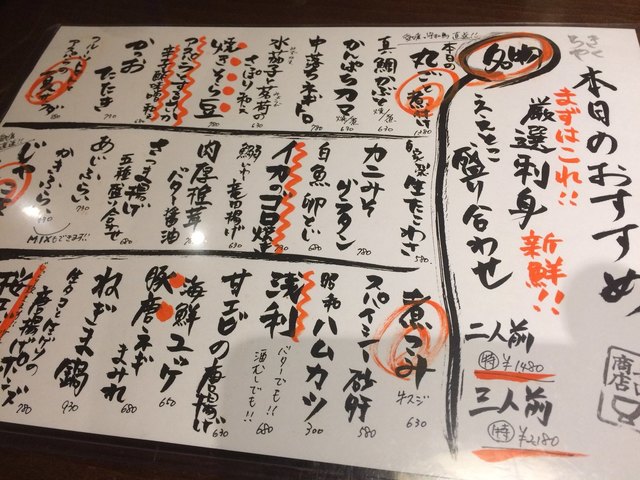 本日のおすすめ
まずはこれ!!
名物
厳選刺身
新鮮!!
ええとこ盛り合わせ
二人前
特 ¥1480
三人前
特 ¥2180
商店
本日の
丸ごと煮付
1280
真鯛かぶと
焼/煮
780
かんぱちカマ
焼/煮
780
中落ちネギトロ
水茄子と茗荷の
さっぱり和え
630
焼きそら豆
630
かつお
たたき
730
自家製生たこわさ
580
カニみそ
グラタン
780
白魚卵とじ
680
イカのゴロ焼き
780
竜田揚げ
630
肉厚椎茸
バター醤油
さつま揚げ
五種盛り合せ
680
あじふらい
かきふらい
MIXもできます!!
煮こみ
牛スジ
630
スパイシー砂肝
580
昭和ハムカツ
300
浅利
バターでも!!
酒むしでも!!
680
甘エビの唐揚げ
630
海鮮ユッケ
豚唐ネギ
まみれ
680
ねぎま鍋
930
唐揚げポンズ
780